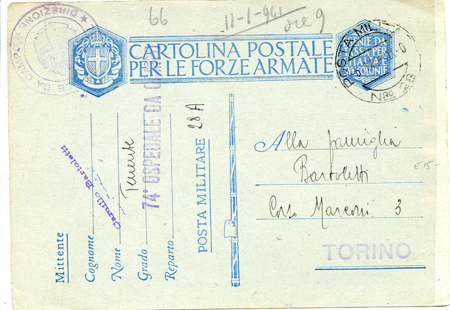 66
11-1-941
ore 9
CARTOLINA POSTALE
PER LE FORZE ARMATE
POSTA MILI
Nro 28
DIREZIONE
DA CAMPO
Alla famiglia
Bartoletti
Corso Marconi 3
TORINO
€ 15-
Mittente
Cognome
Nome
Camillo Bartoletti
Grado Tenente
Reparto 74° OSPEDALE DA C
POSTA MILITARE 28 A